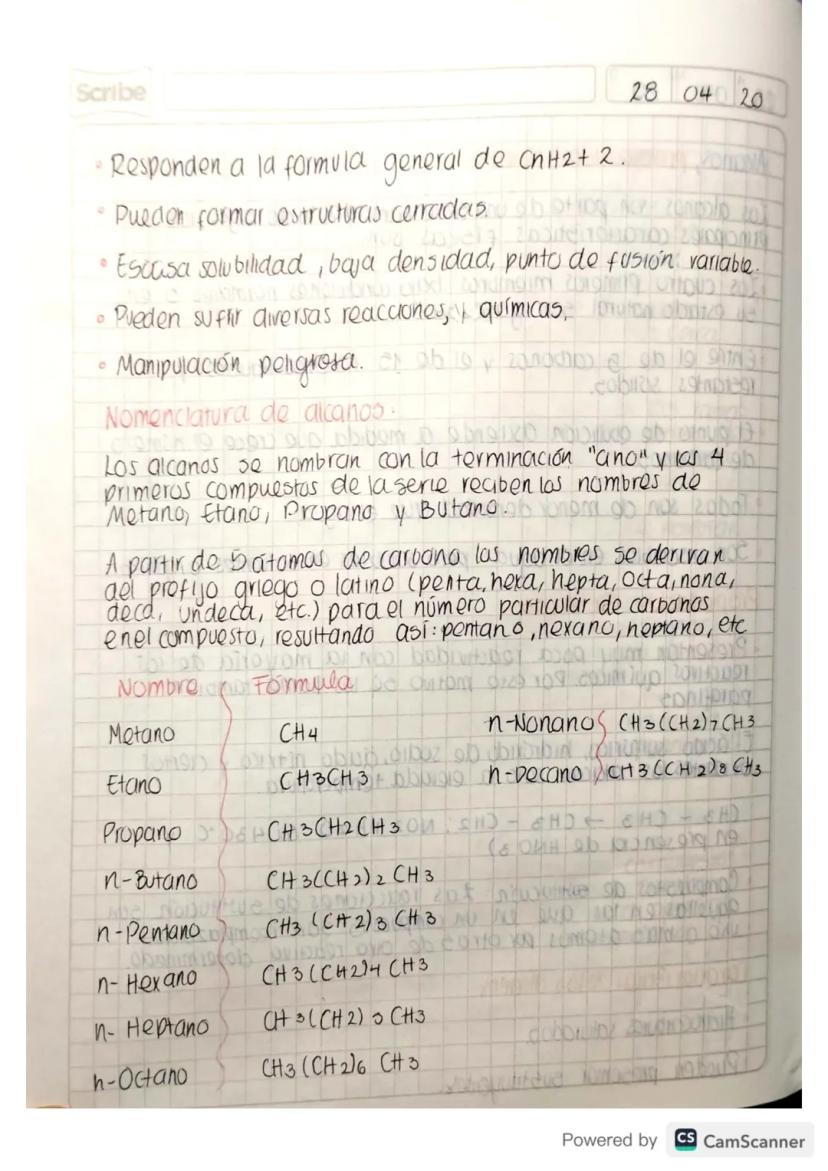 Scribe
28 04 20
• Responden a la formula general de CnH2+2.
• Pueden formar estructuras cerradas.
• Escasa solubilidad, baja densidad, punto de fusión variable.
• Pueden sufrir diversas reacciones, y químicas,
• Manipulación peligrosa.
Nomenclatura de alcanos.
Los alcanos se nombran con la terminación "ano" y las 4
primeros compuestos de la serie reciben los nombres de
Metano, Etano, Propano y Butano.
A partir de 5 átomos de carbono los nombres se derivan
del prefijo griego o latino (penta, hexa, hepta, octa, nona,
deca, undeca, etc.) para el número particular de carbonos
en el compuesto, resultando así: pentano, hexano, heptano, etc
Nombre Fórmula
Metano CH4 n-Nonano CH3(CH2)7CH3
Etano CH3CH3 n-Decano CH3(CH2)8CH3
Propano CH3CH2CH3
n-Butano CH3(CH2)2CH3
n-Pentano CH3(CH2)3CH3
n-Hexano CH3(CH2)4CH3
n-Heptano CH3(CH2)5CH3
n-Octano CH3(CH2)6CH3
Powered by CS CamScanner